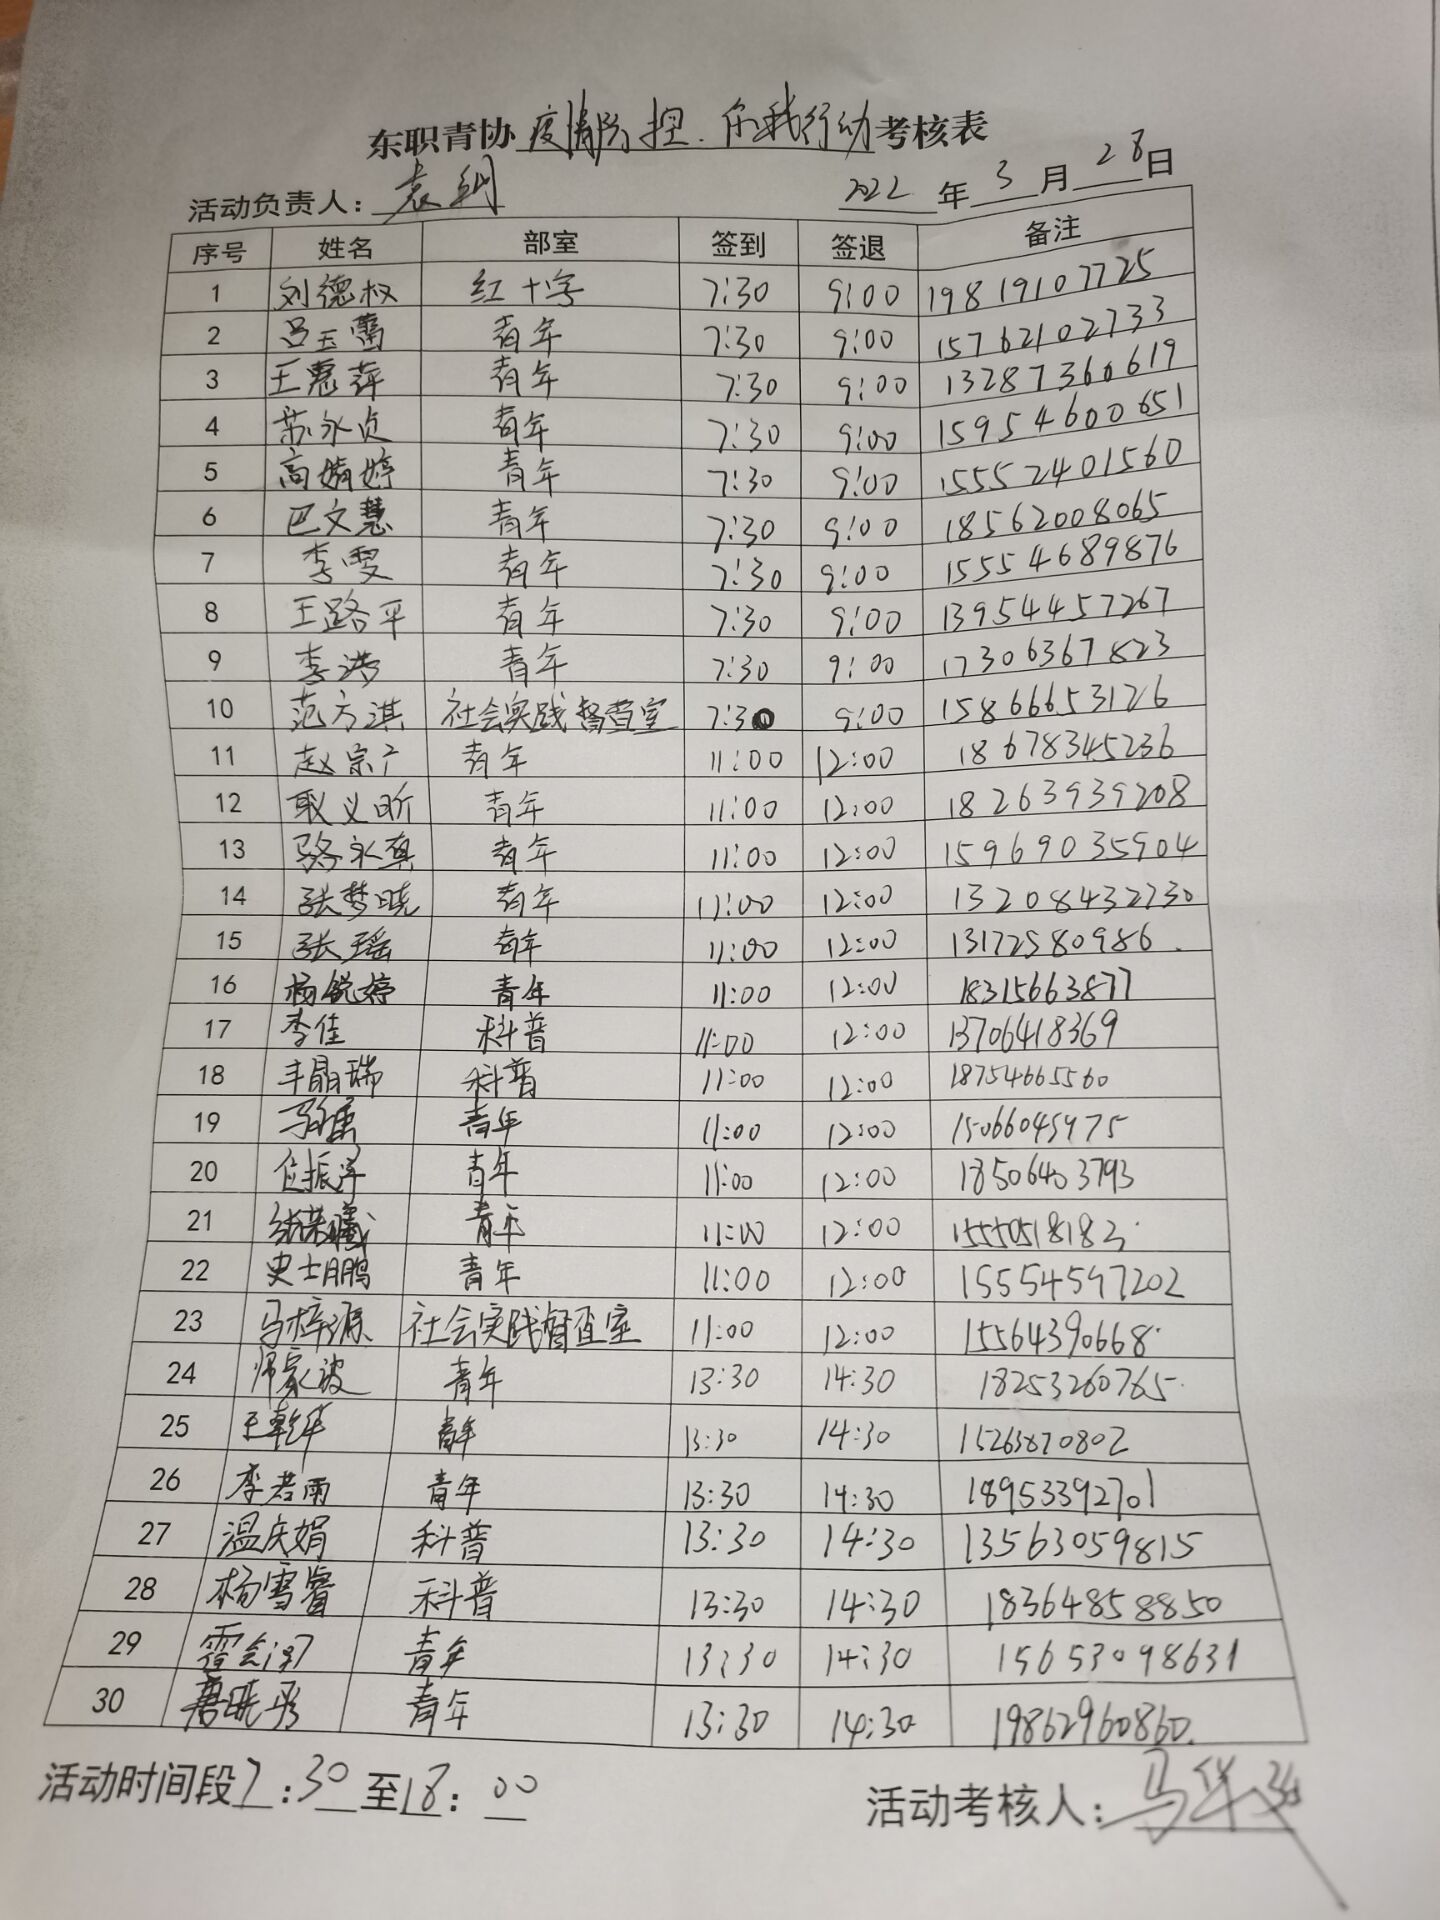 东职青协疫情防控.你我行动考核表
活动负责人：袁纲 2022年3月28日
序号 姓名 部室 签到 签退 备注
1 刘德权 红十字 7:30 9:00 19819107725
2 吕玉蕾 青年 7:30 9:00 15762102733
3 王惠萍 青年 7:30 9:00 13287360619
4 苏永贞 青年 7:30 9:00 15954600651
5 高婧婷 青年 7:30 9:00 15552401560
6 巴文慧 青年 7:30 9:00 18562008065
7 李雯 青年 7:30 9:00 15554689876
8 王路平 青年 7:30 9:00 13954457267
9 李浩 青年 7:30 9:00 17306367823
10 范方淇 社会实践督查室 7:30 9:00 15866653126
11 赵宗广 青年 11:00 12:00 18678345236
12 耿义昕 青年 11:00 12:00 18263939208
13 骆永真 青年 11:00 12:00 15969035904
14 张梦晓 青年 11:00 12:00 13208432730
15 张瑶 青年 11:00 12:00 13172580986
16 杨锐婷 青年 11:00 12:00 18315663877
17 李佳 科普 11:00 12:00 13706418369
18 丰晶瑞 科普 11:00 12:00 18754665560
19 青年 11:00 12:00 15066045975
20 位振泽 青年 11:00 12:00 18506403793
21 青年 11:00 12:00 15550518183
22 史士鹏 青年 11:00 12:00 15554597202
23 马梓源 社会实践督查室 11:00 12:00 15564390668
24 师家波 青年 13:30 14:30 18253260765
25 王乾华 青年 13:30 14:30 15263870802
26 李若雨 青年 13:30 14:30 18953392701
27 温庆娟 科普 13:30 14:30 13563059815
28 杨雪睿 科普 13:30 14:30 18364858850
29 青年 13:30 14:30 15653098631
30 唐晓彤 青年 13:30 14:30 19862960860
活动时间段7:30至18:00 活动考核人：马华